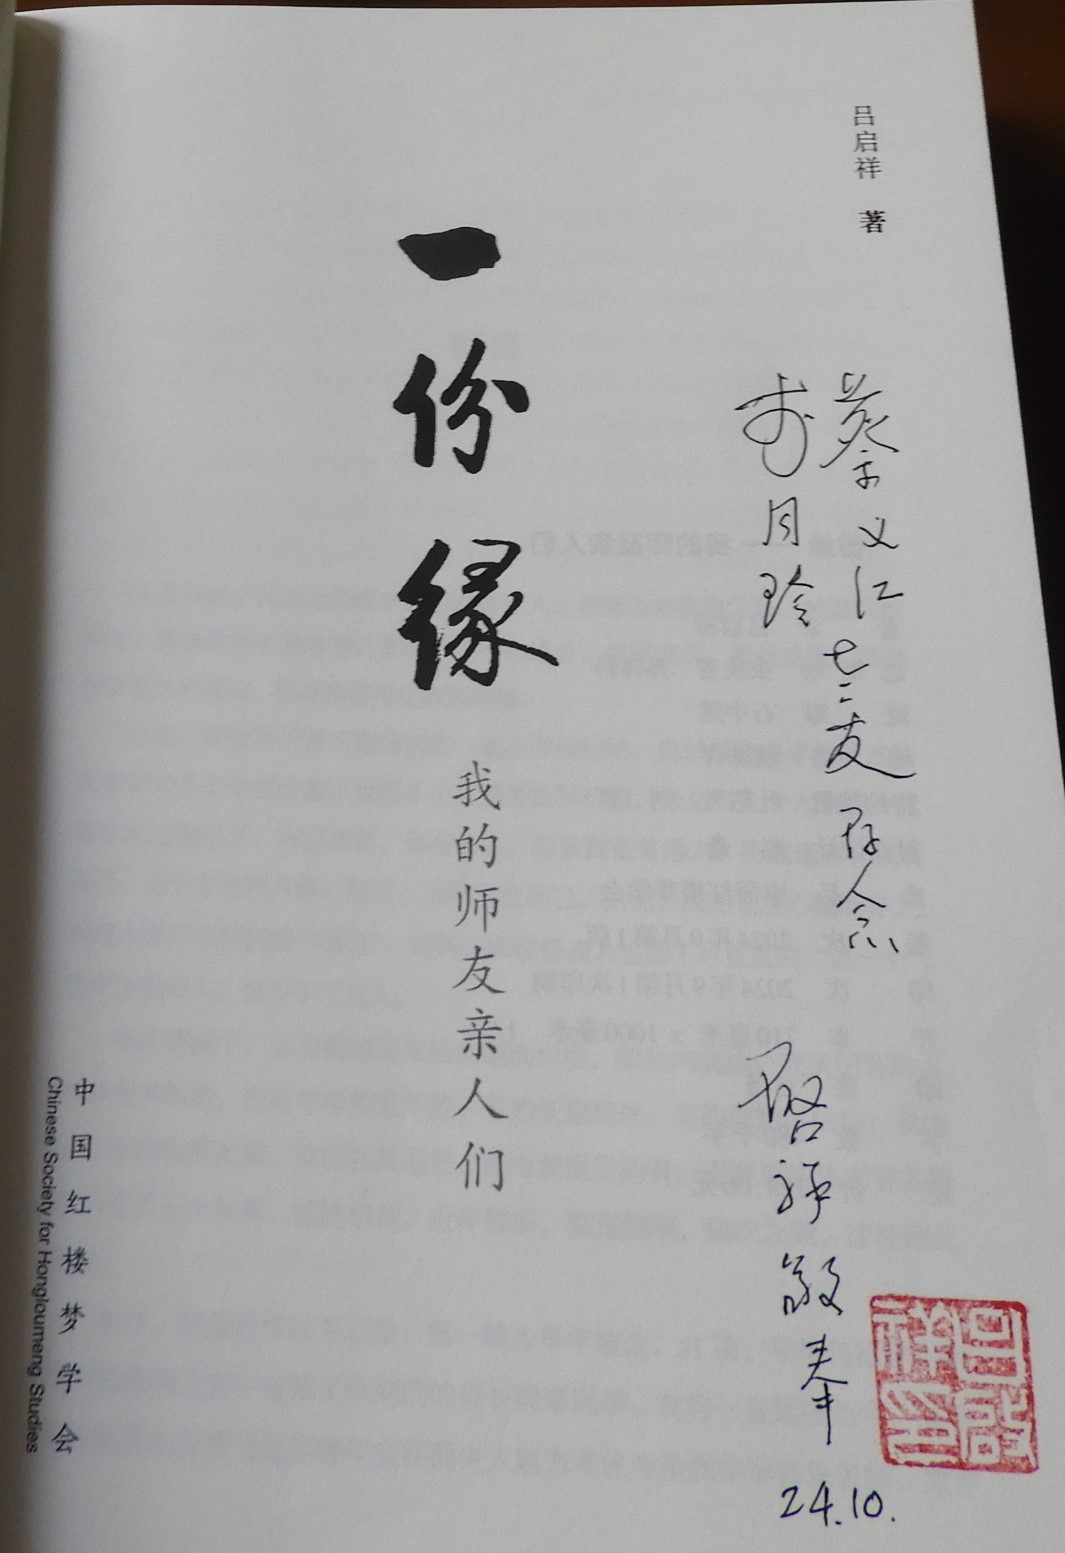 吕启祥 著
蔡义江
李月玲
友存念
一份缘
我的师友亲人们
啓祥敬奉
24.10.
中国红楼梦学会
Chinese Society for Hongloumeng Studies